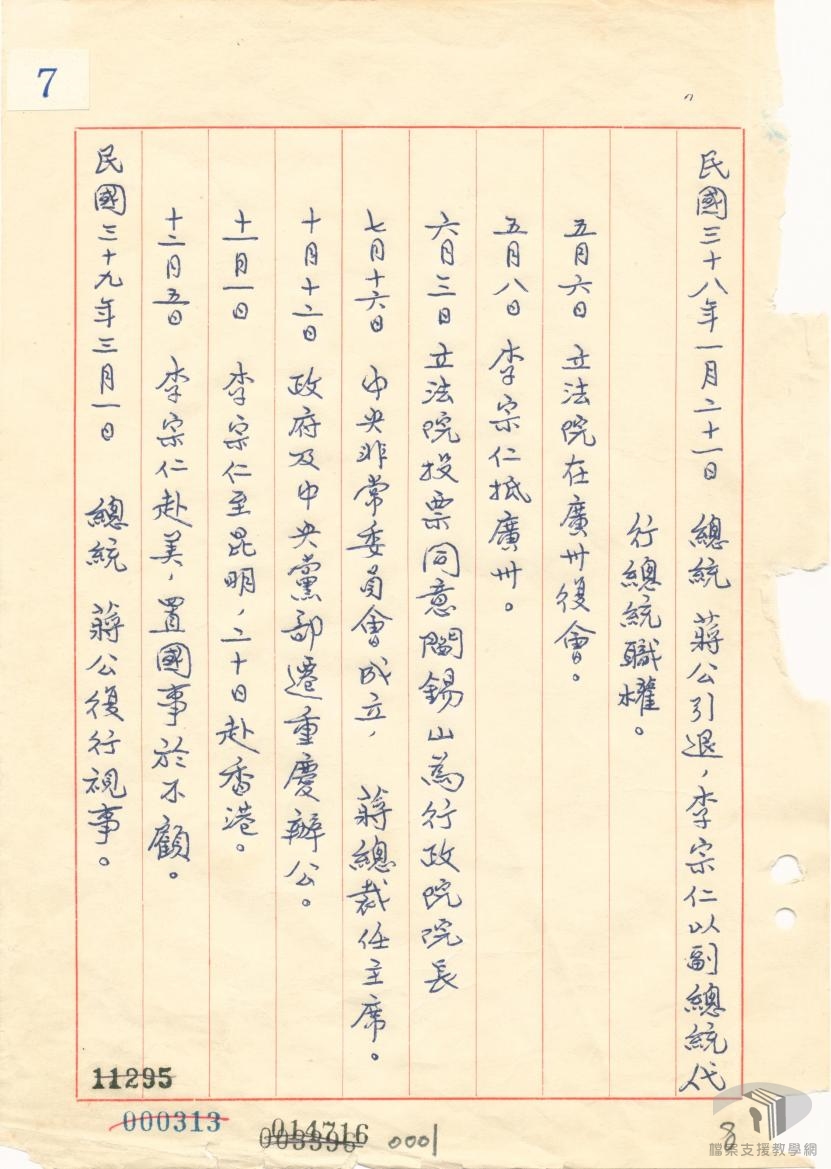 7
民國三十八年一月二十一日 總統 蔣公引退，李宗仁以副總統代
行總統職權。
五月六日 立法院在廣州復會。
五月八日 李宗仁抵廣州。
六月三日 立法院投票同意閻錫山為行政院院長
七月十六日 中央非常委員會成立， 蔣總裁任主席。
十月十二日 政府及中央黨部遷重慶辦公。
十一月一日 李宗仁至昆明，二十日赴香港。
十二月五日 李宗仁赴美，置國事於不顧。
民國三十九年三月一日 總統 蔣公復行視事。
11295
000313
014716
003396
0001
8
檔案支援教學網